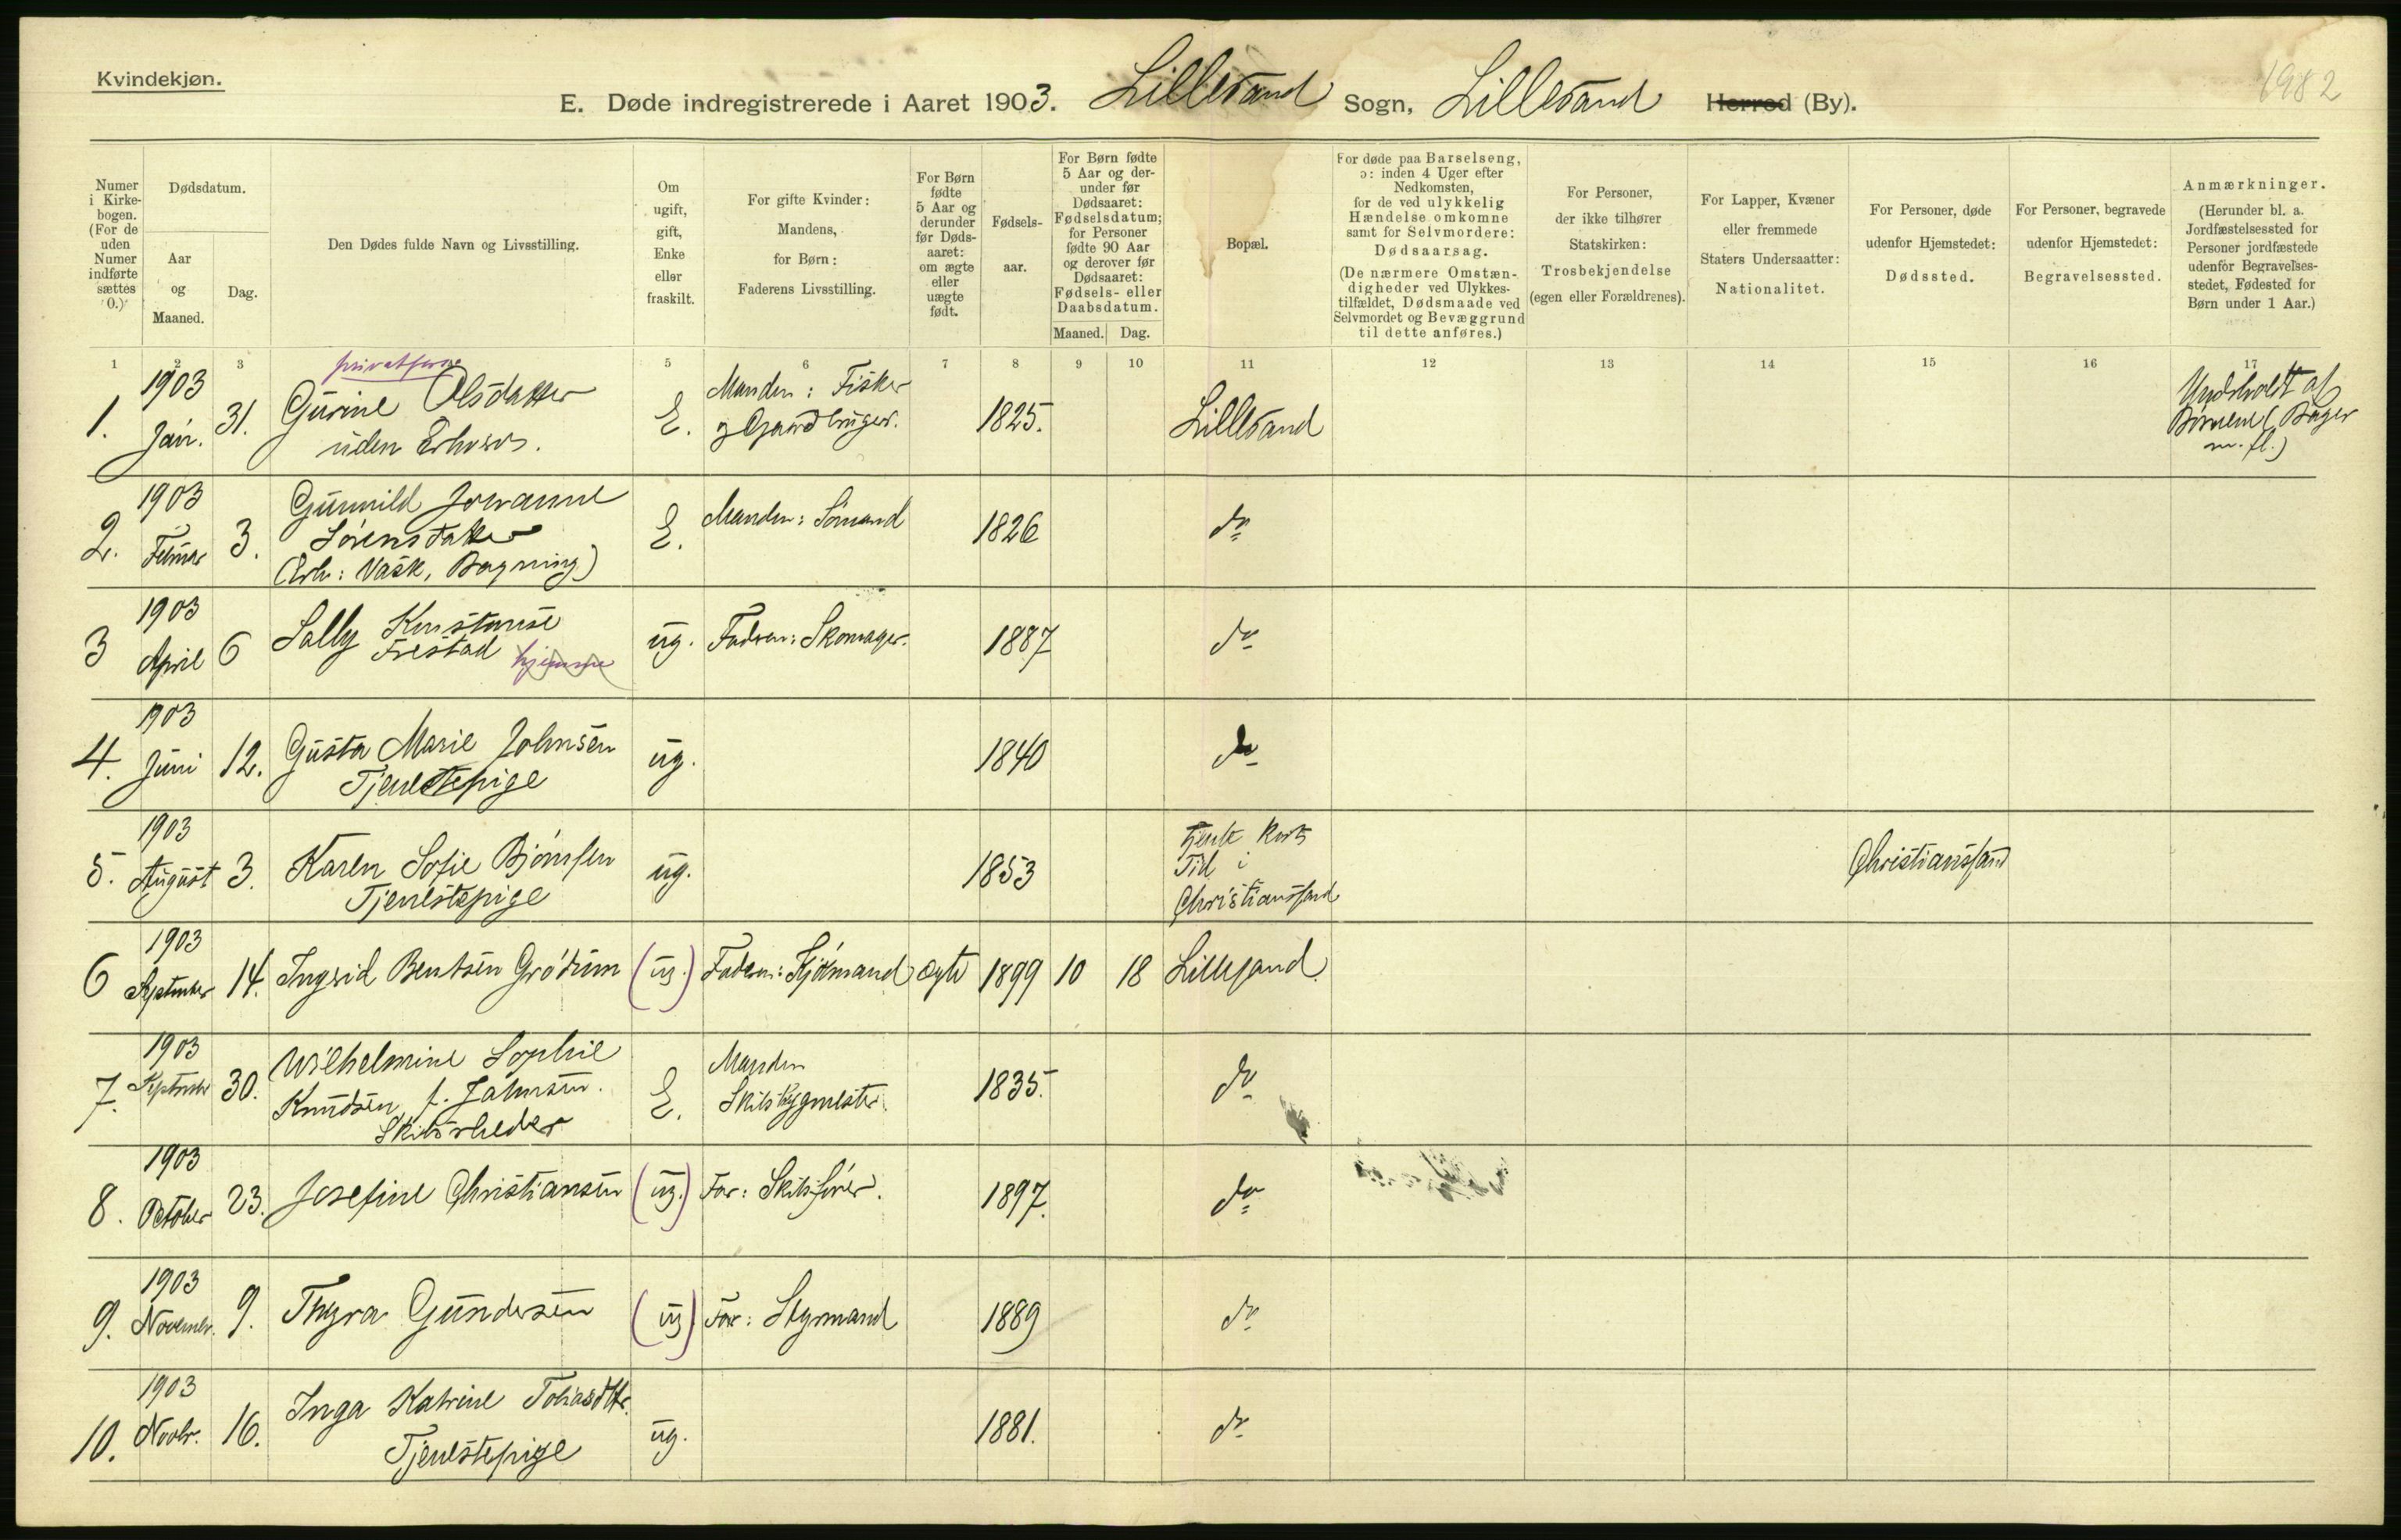 Kvindekjøn.
1982
E. Døde indregistrerede i Aaret 1903. Lillesand Sogn, Lillesand Herred (By).
Numer i Kirkebogen. (For de uden Numer indførte sættes 0.)
Dødsdatum.
Aar og Maaned.
Dag.
Den Dødes fulde Navn og Livsstilling.
Om ugift, gift, Enke eller fraskilt.
For gifte Kvinder: Mandens, for Børn: Faderens Livsstilling.
For Børn fødte 5 Aar og derunder før Dødsaaret: om ægte eller uægte født.
Fødselsaar.
For Børn fødte 5 Aar og derunder før Dødsaaret: Fødselsdatum; for Personer fødte 90 Aar og derover før Dødsaaret: Fødsels- eller Daabsdatum.
Maaned. Dag.
Bopæl.
For døde paa Barselseng, ɔ: inden 4 Uger efter Nedkomsten, for de ved ulykkelig Hændelse omkomne samt for Selvmordere: Dødsaarsag.
(De nærmere Omstændigheder ved Ulykkestilfældet, Dødsmaade ved Selvmordet og Bevæggrund til dette anføres.)
For Personer, der ikke tilhører Statskirken: Trosbekjendelse (egen eller Forældrenes).
For Lapper, Kvæner eller fremmede Staters Undersaatter: Nationalitet.
For Personer, døde udenfor Hjemstedet: Dødssted.
For Personer, begravede udenfor Hjemstedet: Begravelsessted.
Anmærkninger.
(Herunder bl. a. Jordfæstelsessted for Personer jordfæstede udenfor Begravelsesstedet, Fødested for Børn under 1 Aar.)
1 2 3 5 6 7 8 9 10 11 12 13 14 15 16 17
1. 1903 Jan. 31. Gurine Olsdatter uden Erhverv. E. Manden: Fisker og Gaardbruger. 1825. Lillesand Underholdt af Børnene (Bager m. fl.)
2. 1903 Februar 3. Gunnild Johanne Sørensdatter (Erh: Vask, Bagning) E. Manden: Sømand 1826 do
3 1903 April 6 Sally Konstanse Frestad hjemme ug. Faderen: Skomager. 1887 do
4. 1903 Juni 12. Gusta Marie Johnsen Tjenestepige ug. 1840 do
5. 1903 August 3. Karen Sofie Bjørnsen Tjenestepige ug. 1853 tjente kort Tid i Christianssand Christianssand
6 1903 September 14. Ingrid Bentsen Grødum (ug.) Faderen: Kjømand ægte 1899 10 18 Lillesand.
7. 1903 September 30. Wilhelmine Sophie Knudsen f. Jahnsen. Skibsrheder E. Manden Skibsbygmester. 1835. do
8. 1903 October 23. Josefine Christiansen (ug.) Far: Skibsfører. 1897. do
9. 1903 Novembr. 9. Thyra Gundersen (ug) Far: Styrmand 1889 do
10. 1903 Novbr. 16. Inga Katrine Tobiasdtr. Tjenestepige ug. 1881. do